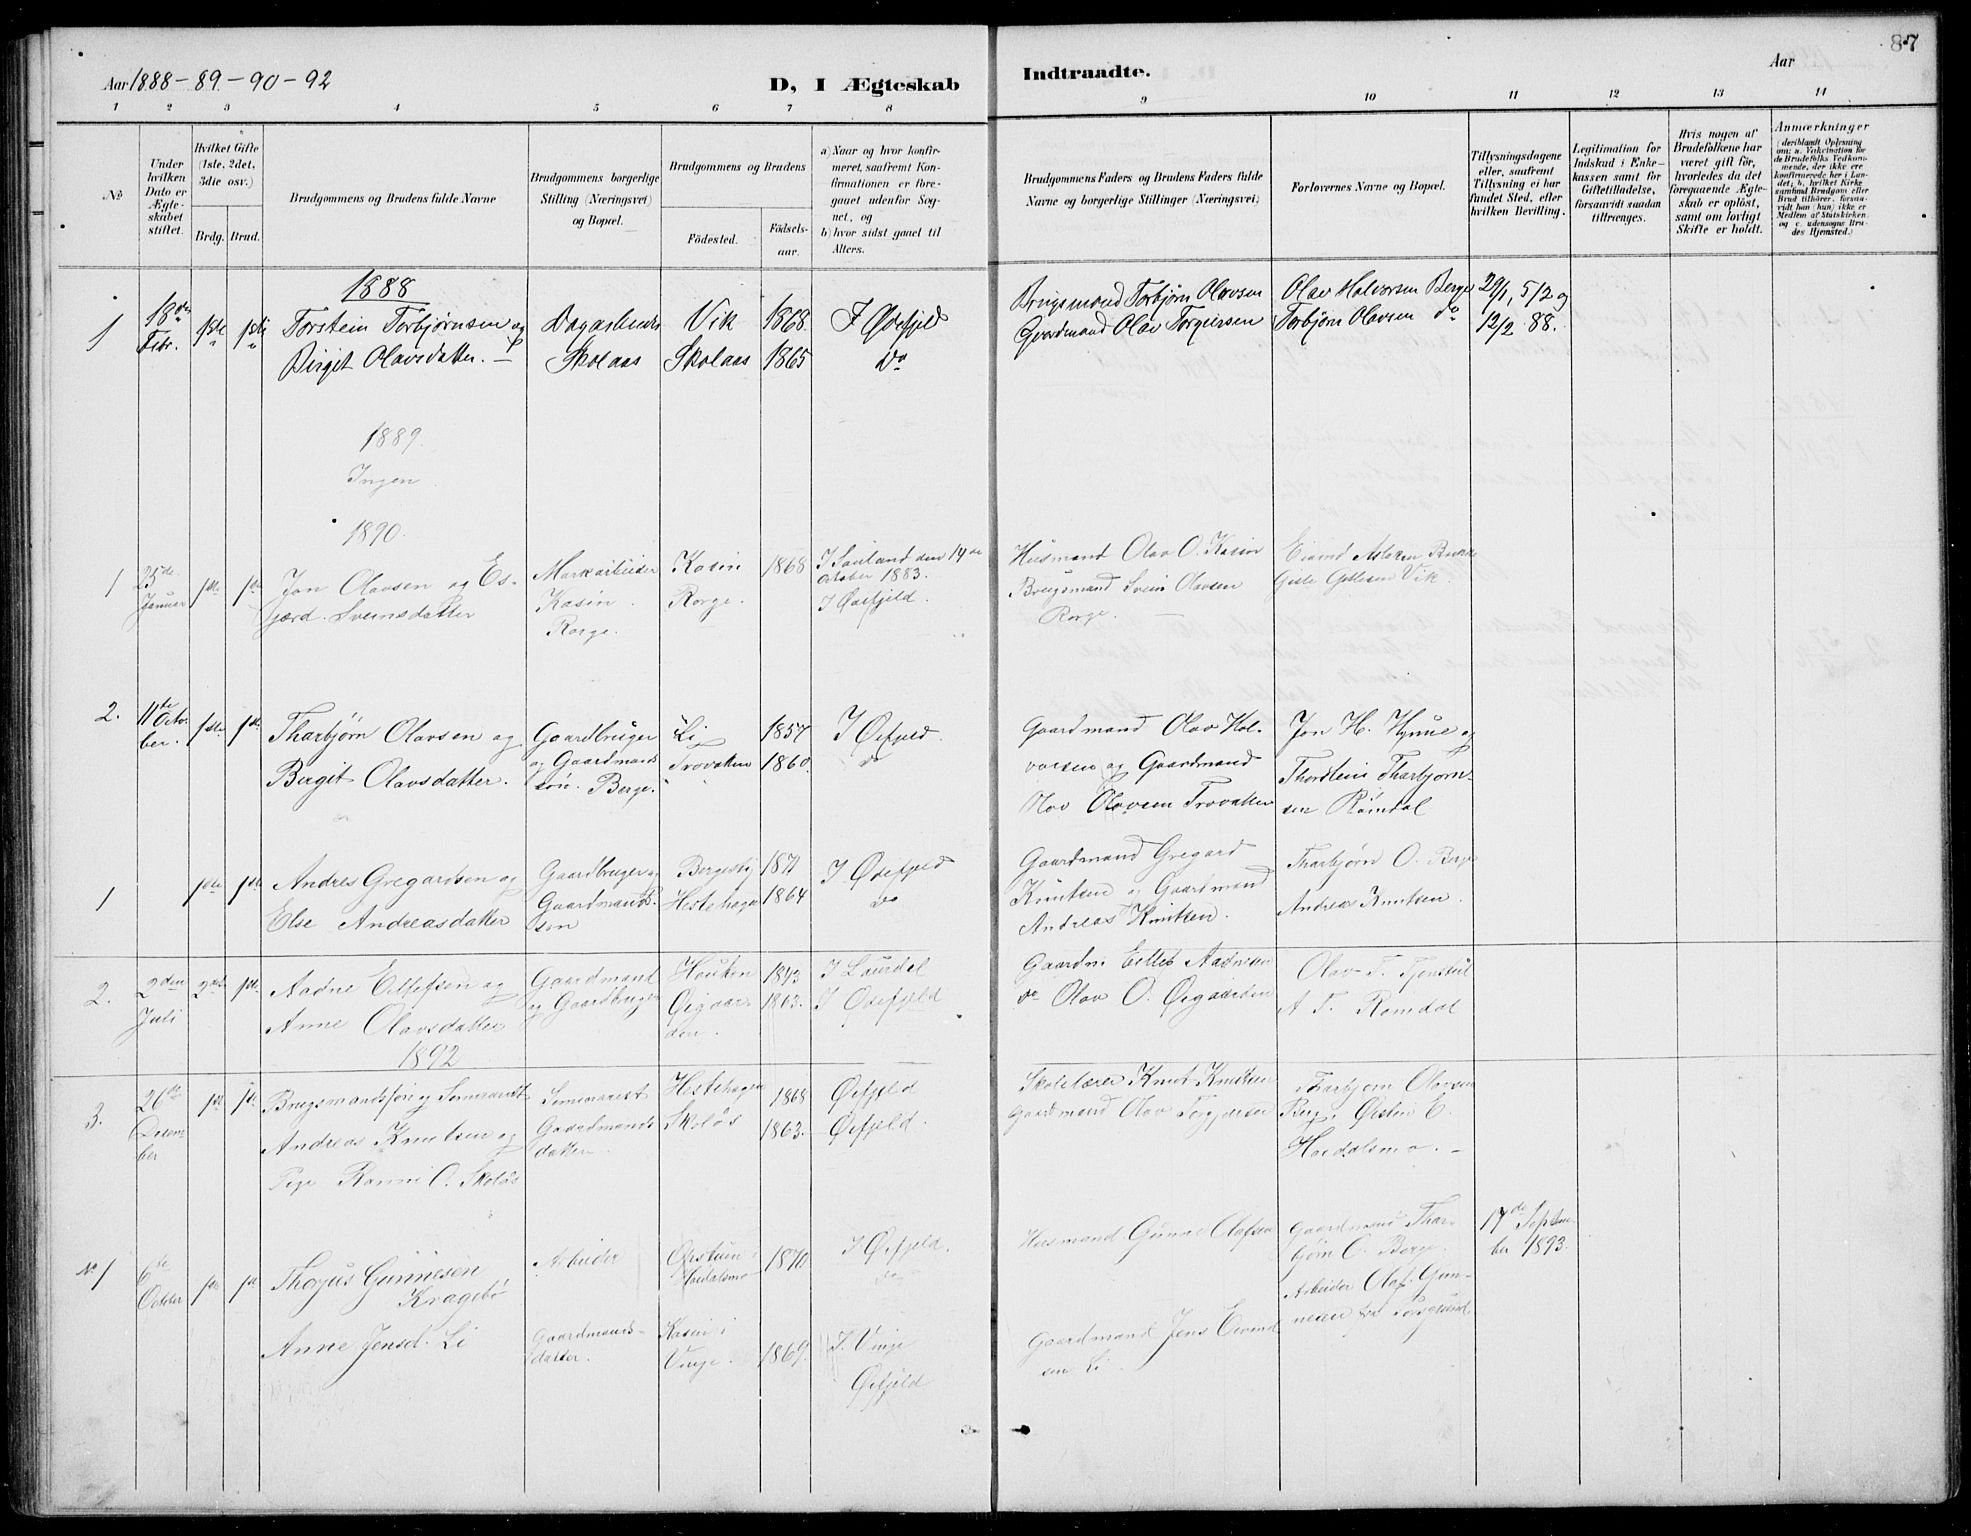 87
Aar 1888-89-90-92
D, I Ægteskab Indtraadte.
Aar
1 2 3 4 5 6 7 8 9 10 11 12 13 14
No
Under hvilken Dato er Ægteskabet stiftet.
Hvilket Gifte (1ste, 2det, 3die osv.)
Brdg. Brud.
Brudgommens og Brudens fulde Navne
Brudgommens borgerlige Stilling (Næringsvei) og Bopæl.
Brudgommens og Brudens
Födested.
Födsels-aar.
a) Naar og hvor konfirmeret, saafremt Konfirmationen er foregaaet udenfor Sognet, og
b) hvor sidst gaaet til Alters.
Brudgommens Faders og Brudens Faders fulde Navne og borgerlige Stillinger (Næringsvei)
Forlovernes Navne og Bopæl.
Tillysningsdagene eller, saafremt Tillysning ei har fundet Sted, efter hvilken Bevilling.
Legitimation for Indskud i Enkekassen samt for Giftetilladelse, forsaavidt saadan tiltrænges.
Hvis nogen af Brudefolkene har været gift för, hvorledes da det foregaaende Ægteskab er oplöst, samt om lovligt Skifte er holdt.
Anmærkninger (deriblandt Oplysning om: a. Vakcination for de Brudefolks Vedkommende, der ikke ere konfirmerede her i Landet; b. hvilket Kirkesamfund Brudgom eller Brud tilhörer, forsaavidt han (hun) ikke er Medlem af Statskirken, og c. udensogns Brudes Hjemsted.)
1888
1 18de Febr. 1ste 1ste Torstein Torbjørnsen og Vik 1868 I Ødefjeld
Birget Olavsdatter. Skolaas Skolaas 1865 Do
Brugsmand Torbjørn Olavsen Olav Halvorsen Berge 29/1, 5/2 og
Gaardmand Olav Torgiersen Torbjørn Olavsen do 12/2 88.
1889.
Ingen
1890.
1 25de Januar 1ste 1ste Jon Olavsen og Es-
jærd. Sveinsdatter
Markarbeider Kosin 1868 I Sauland den 14de October 1883.
Kosin. Rorge. I Ødefjeld.
Rorge.
Husmand Olav O. Kosin
Brugsmand Svein Olavsen
Rorge.
Gisle Vik.
2. 11te Octo-
ber. 1ste 1ste Tharbjørn Olavsen og
Bergit Olavsdatter.
Gaardbruger og Gaardmands
søn. Berge.
Li 1857 I Øefjeld.
Trovatten 1860 do
Gaardmand Olav Hal-
vorsen og Gaardmand
Olav Olavsen Trovatten
Jon H. Hynne og
Thorstein Tharbjørn-
sen Romdal
1 1ste 1ste Andres Gregardsen og
Else Andreasdatter
Gaardbruger og
Gaardmands-
søn
Bergestig 1871 I Ødefjeld
Hestehagen 1864 do
Gaardmand Gregard
Knutsen og Gaardmand
Andreas Knutsen.
Tharbjørn O. Berge
Andreas Knutsen.
2. 2den Juli 2det 1ste Aadne Ellefsen og
Anne Olavsdatter
Gaardmand
og Gaardbruger
Hauken 1843 I Laurdal
Øigaar- 1863. I Ødefjeld
den.
Gaardm. Ellef Aadnesen
do Olav O. Øigaarden
Olav T.
A T. Romdal
1892
3. 26de Decem-
ber 1ste 1ste Brugsmandssøn og Seminarist
Andreas Knutsen og
Pige Ranni O. Skolås
Seminarist
Gaardmands-
datter.
Hestehagen 1868 Øefjeld
Skolås 1863. Øefjeld.
Skolelærer Knut Knutsen
Gaardmand Olav Torgjersen
Tharbjørn Olavsen
Berge, Øistein E.
Haedalsmo.
No 1 6te October 1ste 1ste Thorjus Gunnesen
Kragebø
Anne Jensd. Li
Arbeider
Gaardmands-
datter.
Haedalsmo 1870 I Øefjeld.
Kosin i
Vinje. 1869. I. Vinje
Øefjeld
Husmand Gunne Olafsen
Gaardmand Jens Eivind-
sen Li.
Gaardmand Thar-
bjørn O. Berge.
Arbeider Olaf Gun-
nesen
17de Septem-
ber 1893.